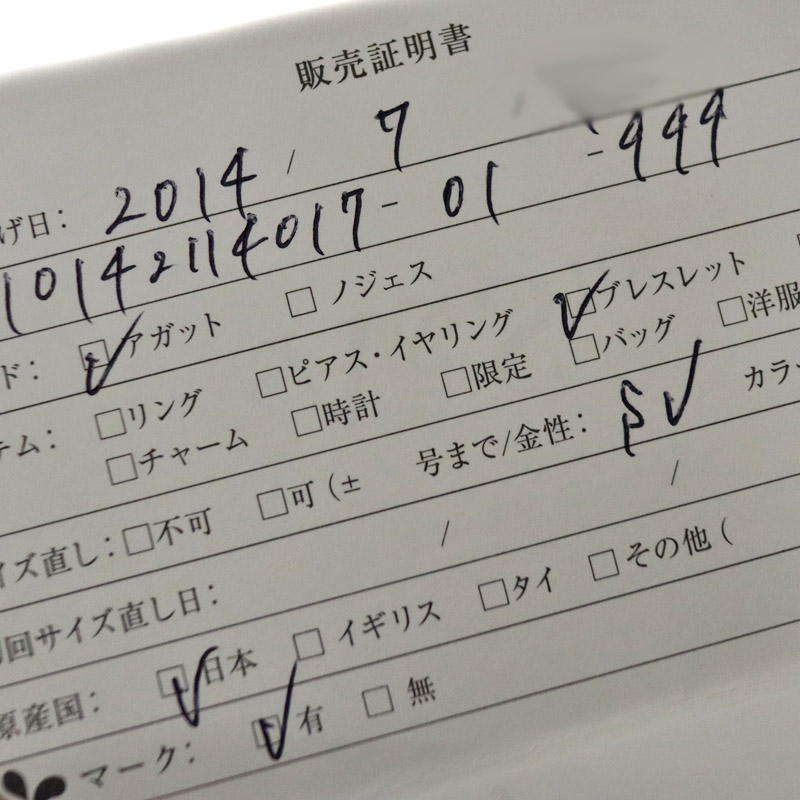 販売証明書
げ日： 2014 / 7 /
10142114017- 01 -999
ド： ☑アガット □ノジェス
テム： □リング □ピアス・イヤリング ☑ブレスレット
□チャーム □時計 □限定 □バッグ □洋服
イズ直し：□不可 □可（± 号まで/金性： SV カラ
回サイズ直し日： / /
原産国： ☑日本 □イギリス □タイ □その他（
マーク： ☑有 □無